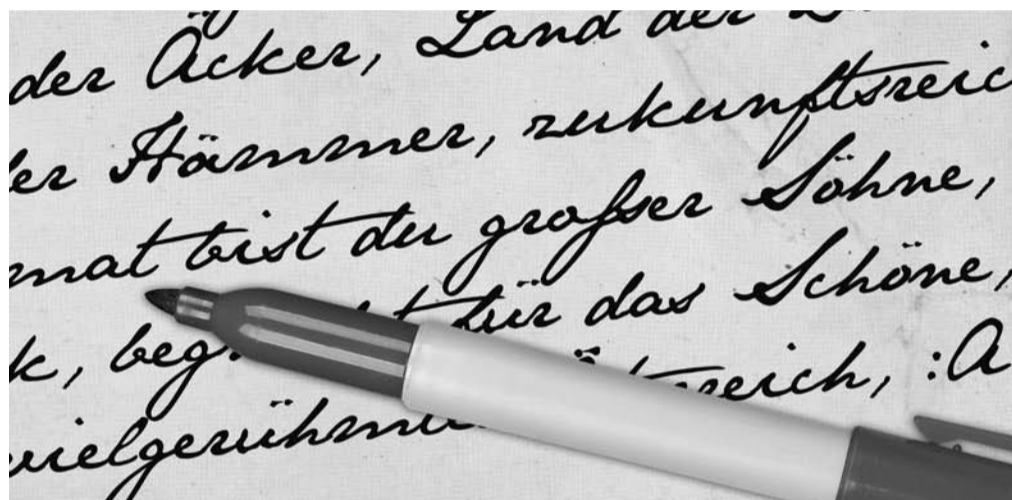 der Äcker, Land der
er Hämmer, zukunftsreic
mat bist du großser Söhne,
k, beg für das Schöne,
vielgerühm reich, :A